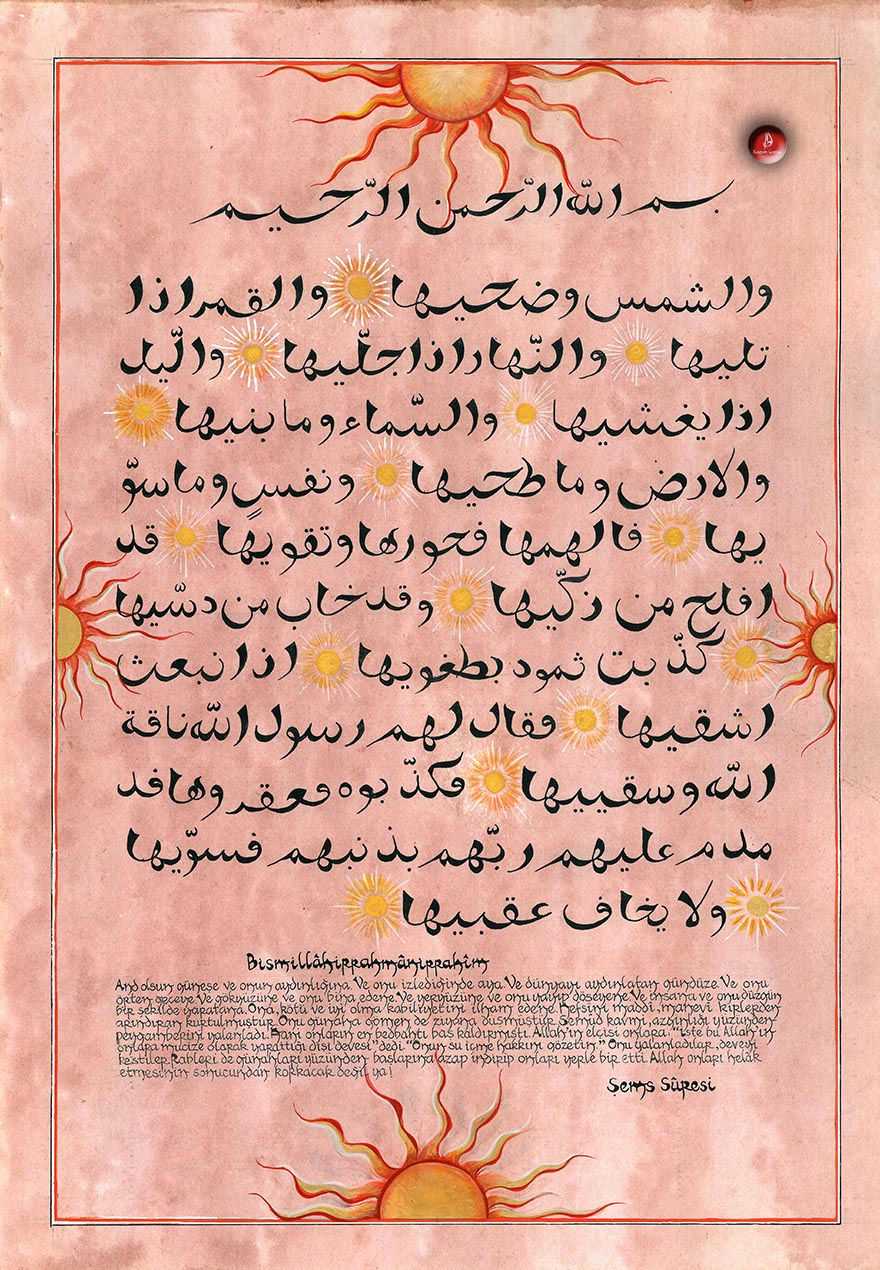 بسم الله الرّحمن الرّحيم
والشمس وضحيها والقمر اذا
تليها والنّهار اذا جلّيها والّيل
اذا يغشيها والسّماء وما بنيها
والارض وما طحيها ونفسٍ وما سوّ
يها فالهمها فجورها وتقويها قد
افلح من زكّيها وقد خاب من دسّيها
كذّبت ثمود بطغويها اذا نبعث
اشقيها فقال لهم رسول الله ناقة
الله وسقييها فكذّبوه فعقروها فد
مدم عليهم ربّهم بذنبهم فسوّيها
ولا يخاف عقبيها
Bismillâhirrahmânirrahîm
And olsun güneşe ve onun aydınlığına. Ve onu izlediğinde aya. Ve dünyayı aydınlatan gündüze. Ve onu
örten geceye. Ve gökyüzüne ve onu bina edene. Ve yeryüzüne ve onu yayıp döşeyene. Ve insana ve onu düzgün
bir şekilde yaratana. Ona, kötü ve iyi olma kabiliyetini ilham edene. Nefsini maddi, manevi kirlerden
arındıran kurtulmuştur. Onu günaha gömen de ziyana düşmüştür. Semud kavmi, azgınlığı yüzünden
peygamberini yalanladı. Hani onların en bedbahtı baş kaldırmıştı. Allah'ın elçisi onlara: "İşte bu Allah'ın
onlara mucize olarak yarattığı dişi devesi" dedi "Onun su içme hakkını gözetin." Onu yalanladılar, deveyi
kestiler. Rableri de günahları yüzünden başlarına azap indirip onları yerle bir etti. Allah onları helak
etmesinin sonucundan korkacak değil ya!
Şems Sûresi